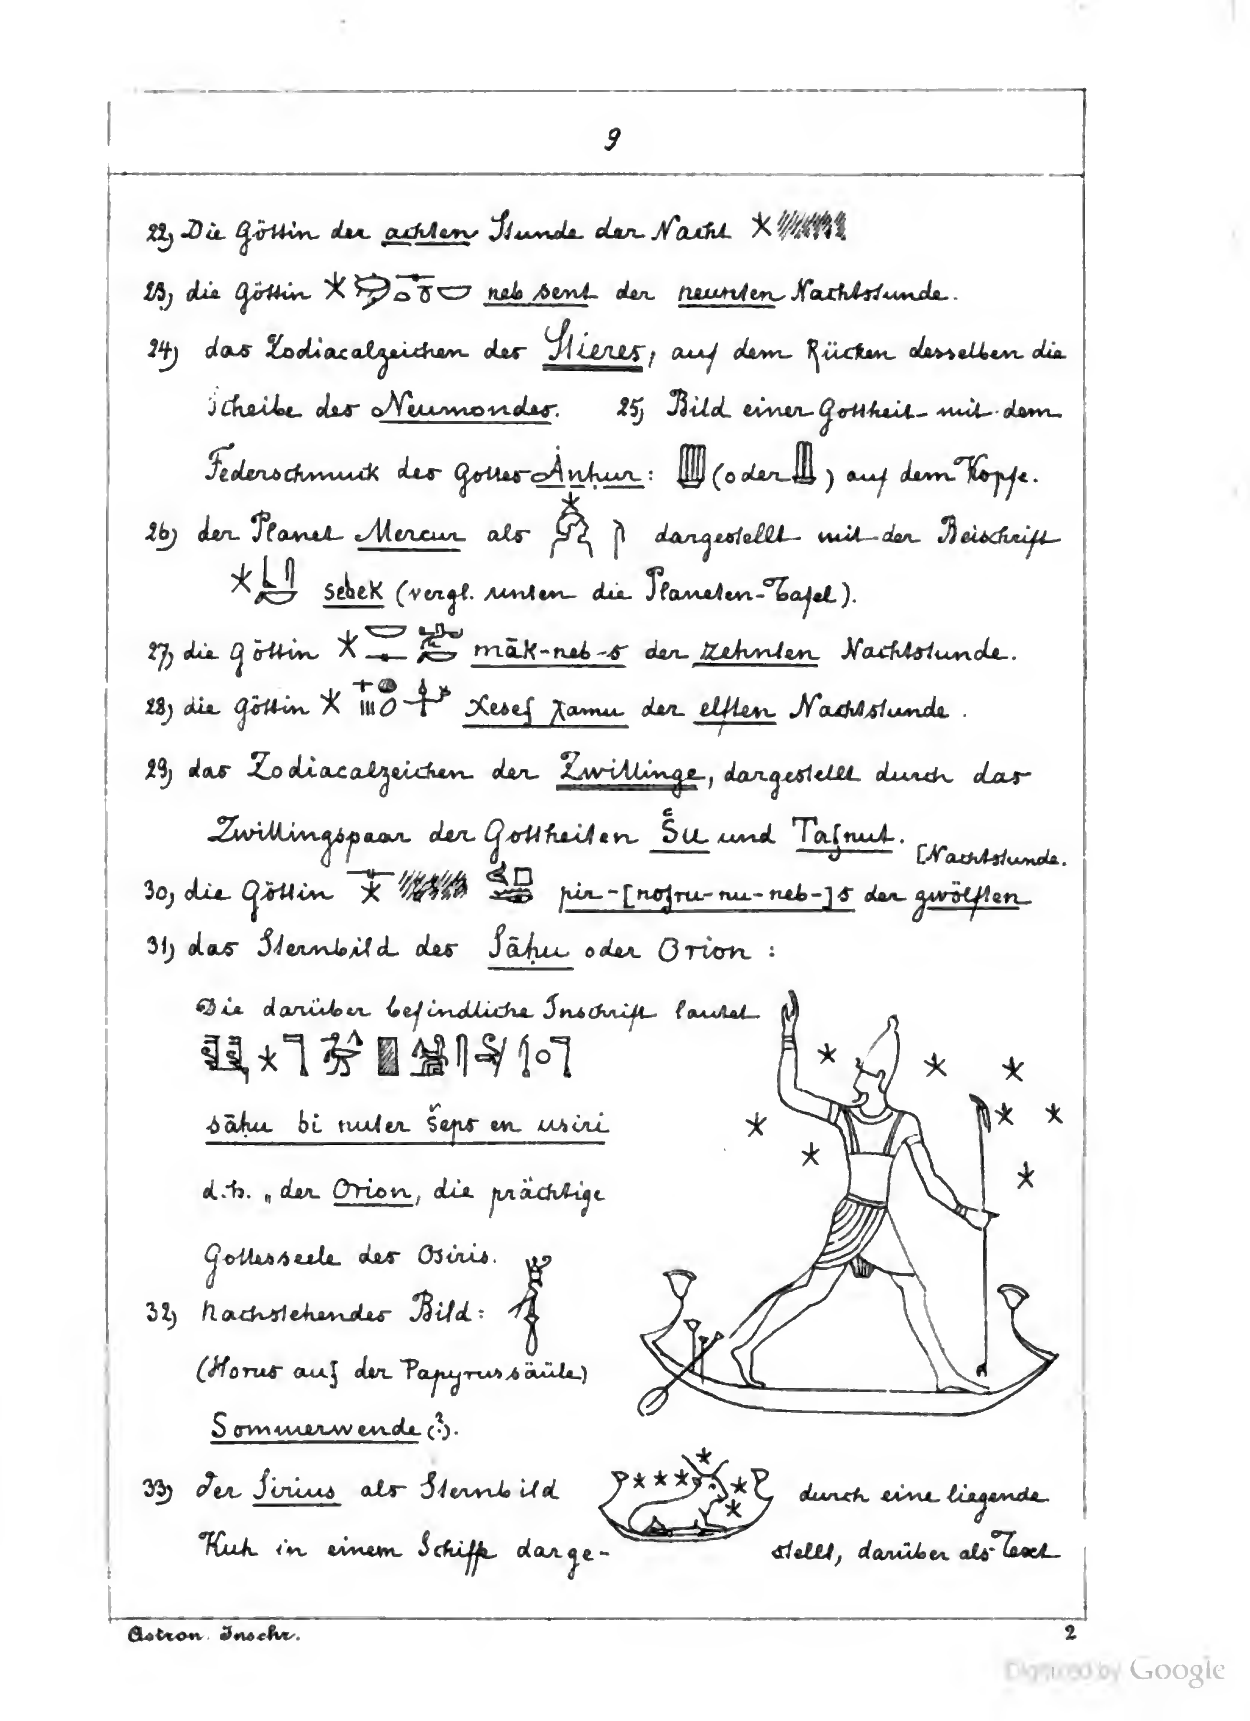 9
22) Die Göttin der achten Stunde der Nacht
23) die Göttin neb sent der neunten Nachtstunde.
24) das Zodiacalzeichen des Stieres, auf dem Rücken desselben die
Scheibe des Neumondes. 25) Bild einer Gottheit mit dem
Federschmuck des Gottes Ȧnḥur: (oder ) auf dem Kopfe.
26) der Planet Mercur als dargestellt mit der Beischrift
sebek (vergl. unten die Planeten-Tafel).
27) die Göttin māk-neb-s der zehnten Nachtstunde.
28) die Göttin χesef χamu der elften Nachtstunde.
29) das Zodiacalzeichen der Zwillinge, dargestellt durch das
Zwillingspaar der Gottheiten Šu und Tafnut.
[Nachtstunde.
30) die Göttin pir-[nofru-nu-neb-]s der zwölften
31) das Sternbild des Sāḥu oder Orion:
Die darüber befindliche Inschrift lautet
sāḥu bi nuter šeps en usiri
d.h. „der Orion, die prächtige
Gottesseele des Osiris.
32) Nachstehendes Bild:
(Horus auf der Papyrussäule)
Sommerwende (?).
33) Der Sirius als Sternbild durch eine liegende
Kuh in einem Schiffe darge- stellt, darüber als Text
Astron. Inschr. 2
Digitized by Google